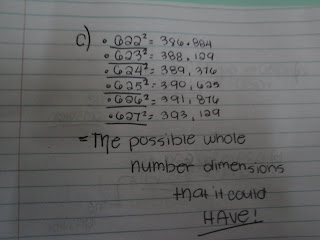 c) • 622² = 386,884
• 623² = 388,129
• 624² = 389,376
• 625² = 390,625
• 626² = 391,876
• 627² = 393,129
= The possible whole
number dimensions
that it could
HAVE!